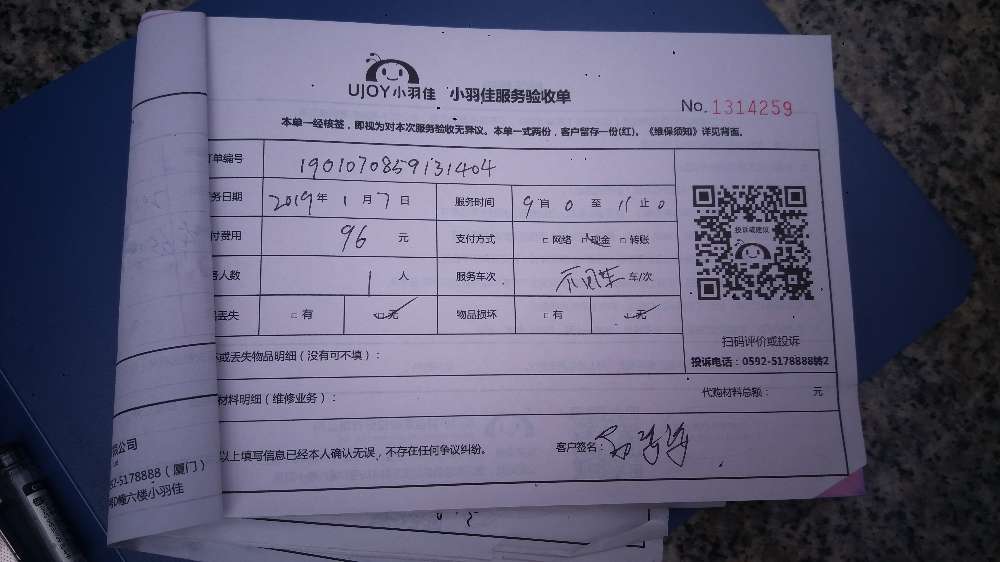 UJOY小羽佳 小羽佳服务验收单
No. 1314259
本单一经核签，即视为对本次服务验收无异议。本单一式两份，客户留存一份(红)。《维保须知》详见背面。
订单编号 1901070859131404
务日期 2019年1月7日 服务时间 9自0至11止0
付费用 96 元 支付方式 □网络 □现金 □转账
人数 1 人 服务车次 车/次
丢失 □有 □无 物品损坏 □有 □无
投诉或建议
扫码评价或投诉
投诉电话：0592-5178888转2
或丢失物品明细（没有可不填）：
材料明细（维修业务）： 代购材料总额： 元
以上填写信息已经本人确认无误，不存在任何争议纠纷。 客户签名：
限公司
92-5178888（厦门）
幢六楼小羽佳